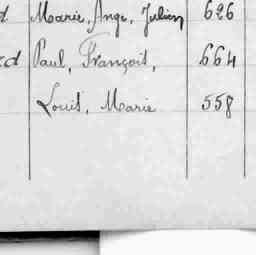 d Marie, Ange, Julien 626
ed Paul, François, 664
Louis, Marie 558